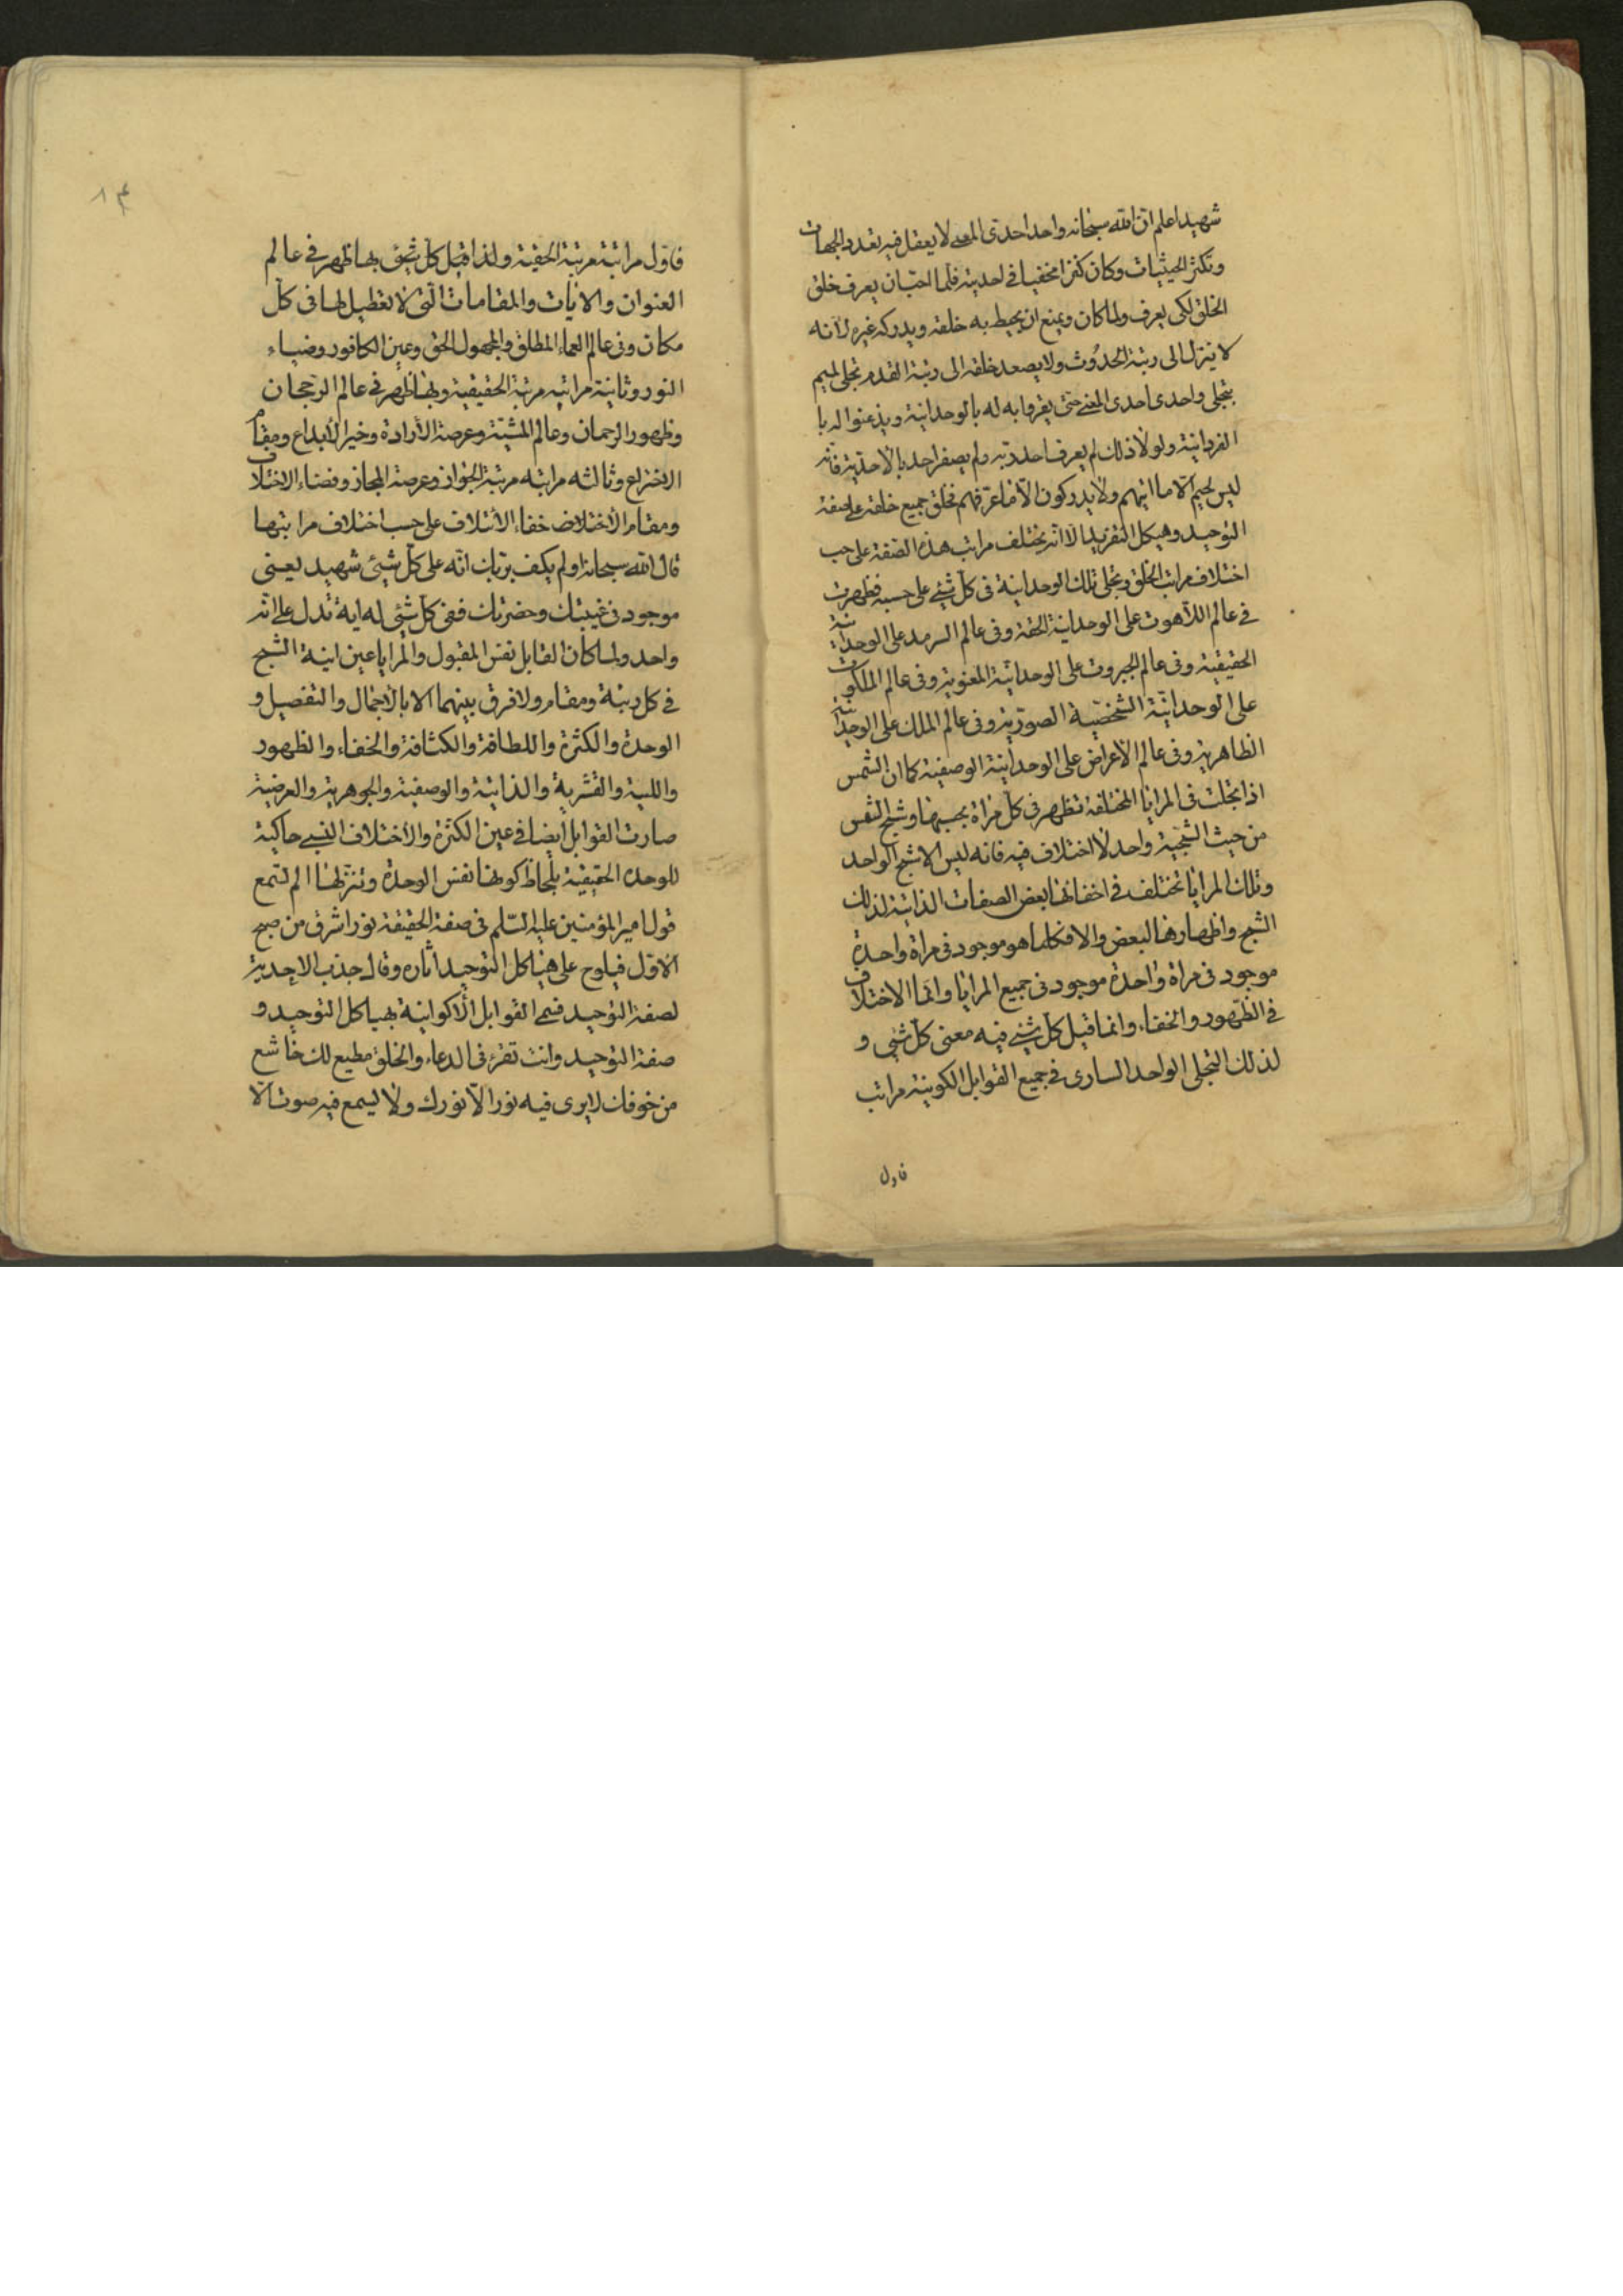 شهيد اعلم ان الله سبحانه واحد احدى المعنى لا يعقل فيه تعدد الجهات
وتكثر الحيثيات وكان كنزا مخفيا فى احديته فلما احب ان يعرف خلق
الخلق لكى يعرف ولما كان ويمنع ان يحيط به خلقه ويدركه غيره لانه
لا يتنزل الى رتبة الحدوث ولا يصعد خلقه الى رتبة القدم تجلى لهم
بتجلى واحدى احدى المعنى حتى يقروا به له بالوحدانية ويذعنوا له با
الفردانية ولولا ذلك لم يعرف احد ربه ولم يصفه احد بالاحدية فانه
ليس لهم الا ما اتيهم ولا يدركون الا ما عرفهم فخلق جميع خلقه على صفة
التوحيد وهيكل التفريد الا انه يختلف مراتب هذه الصفة على حسب
اختلاف مراتب الخلق وتجلى تلك الوحدانية فى كل شئ على حسبه فظهرت
فى عالم اللاهوت على الوحدانية الحقة وفى عالم السرمد على الوحدانية
الحقيقية وفى عالم الجبروت على الوحدانية المعنوية وفى عالم الملكوت
على الوحدانية الشخصية الصورية وفى عالم الملك على الوحدانية
الظاهرية وفى عالم الاعراض على الوحدانية الوصفية كما ان الشمس
اذا تجلت فى المرايا المختلفة تظهر فى كل مراة بحسبها وشبح الشمس
من حيث الشبحية واحد لا اختلاف فيه فانه ليس الا شبح الواحد
وتلك المرايا تختلف فى اخفائها بعض الصفات الذاتية لذلك
الشبح واظهارها البعض والا فكلما هو موجود فى مراة واحدة
موجود فى مراة واحدة موجود فى جميع المرايا وانما الاختلاف
فى الظهور والخفاء وانما قيل كل شئ فيه معنى كل شئ و
لذلك التجلى الواحد السارى فى جميع القوابل الكونية مراتب
فاول
٨٤
فاول مراتبه مرتبة الحقية ولذا قيل كل شئ بها ظهر فى عالم
العنوان والايات والمقامات التى لا تعطيل لها فى كل
مكان وفى عالم العماء المطلق والمجهول الحق وعين الكافور وضياء
النور وثانية مراتبه مرتبة الحقيقية وبها ظهر فى عالم الرجحان
وظهور الرحمان وعالم المشية وعرصة الأرادة وخير الأبداع ومقام
الاختراع وثالثه مراتبه مرتبة الجواز وعرصة المجاز وفضاء الائتلاف
ومقام الأختلاف خفاء الأئتلاف على حسب اختلاف مراتبها
قال الله سبحانه اولم يكف بربك انه على كل شئ شهيد يعنى
موجود فى غيبتك وحضرتك ففى كل شئ له اية تدل على انه
واحد ولما كان القابل نفس المقبول والمرايا عين انية الشبح
فى كل رتبة ومقام ولا فرق بينهما الا بالأجمال والتفصيل و
الوحدة والكثرة واللطافة والكثافة والخفاء والظهور
واللبية والقشرية والذاتية والوصفية والجوهرية والعرضية
صارت القوابل ايضا فى عين الكثرة والأختلاف النسبى حاكية
للوحدة الحقيقية بلحاظ كونها نفس الوحدة وتنزلها الم تسمع
قول امير المؤمنين عليه السلم فى صفة الحقيقة نور اشرق من صبح
الاول فيلوح على هياكل التوحيد اثاره وقال جذب الاحدية
لصفة التوحيد فسمى القوابل الاكوانية بهياكل التوحيد و
صفة التوحيد وانت تقرء فى الدعاء والخلق مطيع لك خاشع
من خوفك لا يرى فيه نور الا نورك ولا يسمع فيه صوت الا